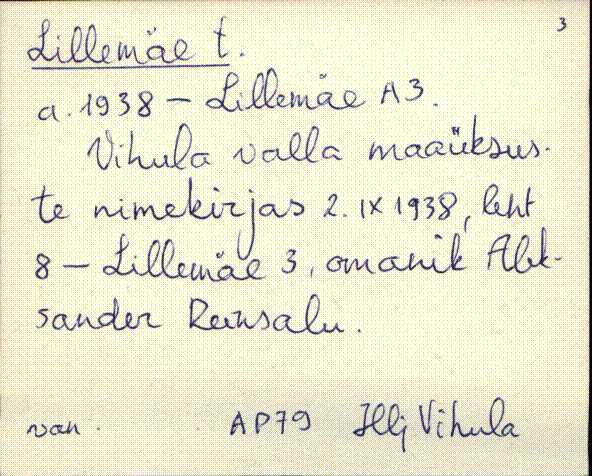 3
Lillemäe t.
a. 1938 – Lillemäe A3.
Vihula valla maaüksus-
te nimekirjas 2. IX 1938, leht
8 – Lillemäe 3, omanik Alek-
sander Reinsalu.
van. AP79 Hlj Vihula